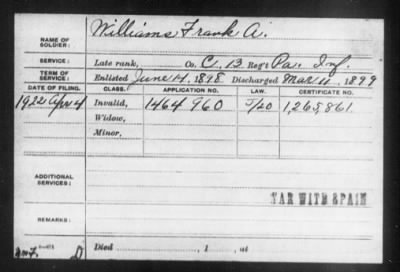 NAME OF SOLDIER: Williams Frank A.
SERVICE: Late rank, Co. C, 13 Reg't Pa. Inf.
TERM OF SERVICE: Enlisted June 14, 1898 Discharged Mar 11, 1899
DATE OF FILING. CLASS. APPLICATION NO. LAW. CERTIFICATE NO.
1922 Apr 4 Invalid, 1464960 1,265,861
Widow,
Minor,
ADDITIONAL SERVICES:
WAR WITH SPAIN
REMARKS:
Died , 1 , at